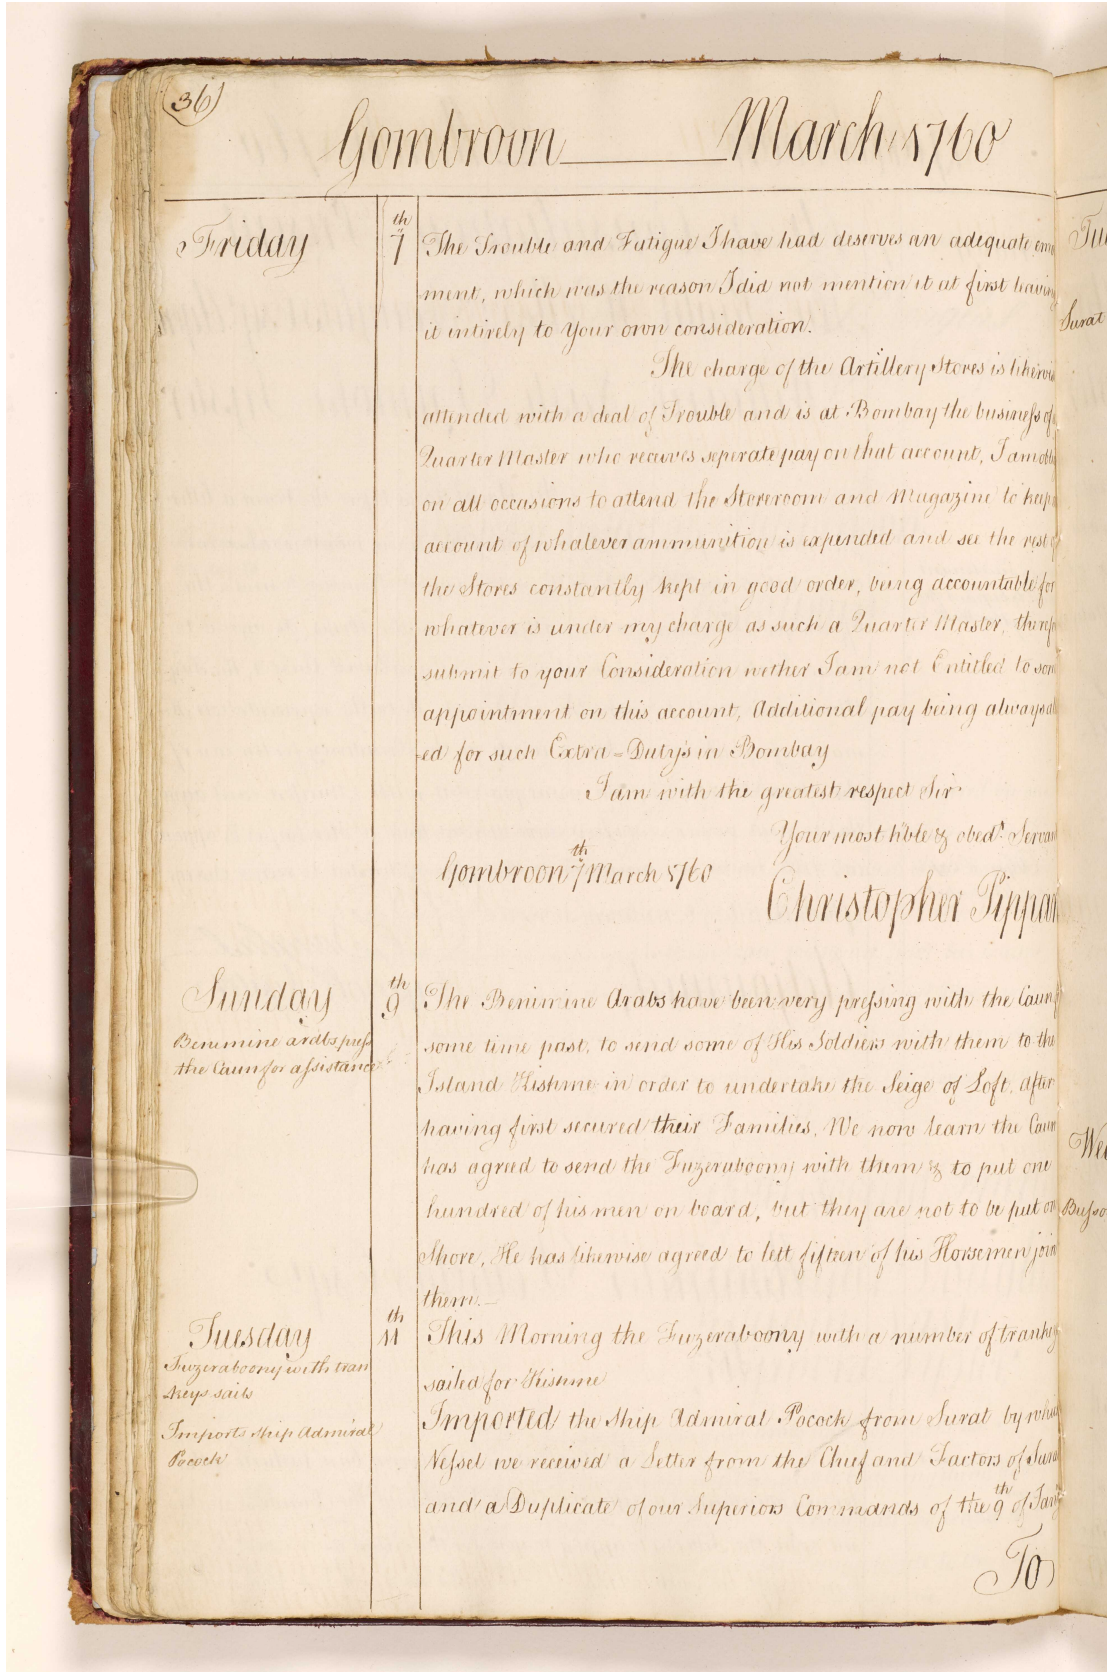 36
Gombroon March 1760
Friday 7th The Trouble and Fatigue I have had deserves an adequate
ment, which was the reason I did not mention it at first leaving
it intirely to Your own consideration.
The charge of the Artillery Stores is likewis
attended with a deal of Trouble and is at Bombay the business of
Quarter Master who receives seperate pay on that account, I am
on all occasions to attend the Storeroom and Magazine to keep
account of whatever ammunition is expended and see the rest of
the Stores constantly kept in good order, being accountable for
whatever is under my charge as such a Quarter Master,
submit to your Consideration wether I am not Entitled to som
appointment on this account, Additional pay being always al
ed for such Extra=Duty's in Bombay
I am with the greatest respect Sir
Your most hble & obedt. Servan
Gombroon 7th March 1760
Christopher Pippar
Sunday 9th The Benimine Arabs have been very pressing with the Caun
Benimine arabs press
the Caun for assistance
some time past, to send some of His Soldiers with them to the
Island Kishme in order to undertake the Seige of Loft, after
having first secured their Families, We now learn the Caun
has agreed to send the Fuzeraboony with them & to put one
hundred of his men on board, but they are not to be put on
Shore, He has likewise agreed to lett fifteen of his Horsemen join
them.
Tuesday 11th This Morning the Fuzeraboony with a number of trankeys
Fuzeraboony with tran
keys sails
sailed for Kishme
Imports Ship Admiral
Pocock
Imported the Ship Admiral Pocock from Surat by which
Vessel we received a Letter from the Chief and Factors of Surat
and a Duplicate of our Superiors Commands of the 9th of Jany
To
Surat